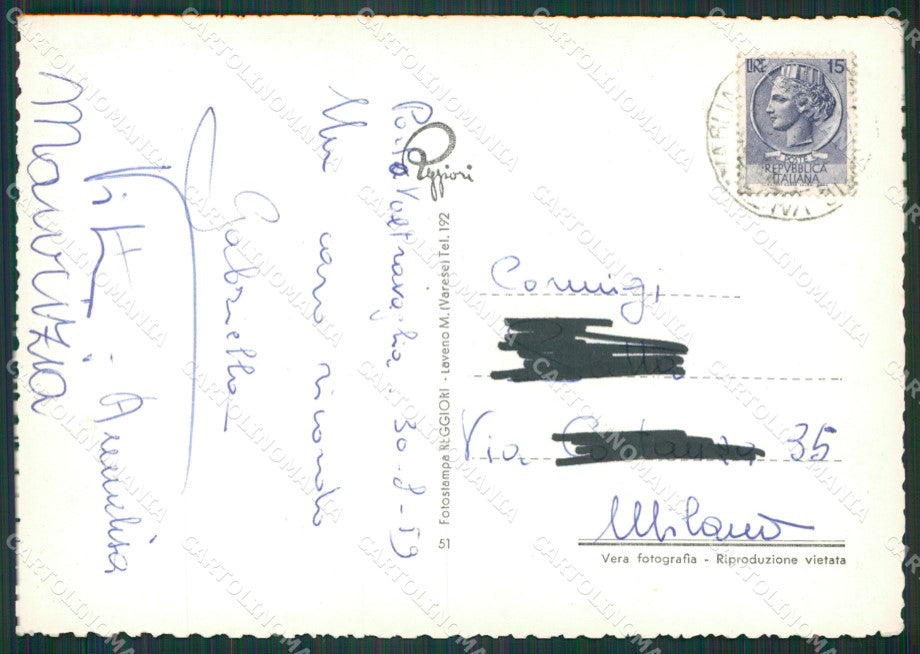 Porto Valtravaglia. 30-8-59
Un caro ricordo
Gabriella
Annalisa
Vitt
Maurizia
Reggiori
51 Fotostampa REGGIORI - Laveno M. (Varese) Tel. 192
LIRE 15
POSTE
REPVBBLICA
ITALIANA
Coniugi
Via 35
Milano
Vera fotografia - Riproduzione vietata
CARTOLINOMANIA